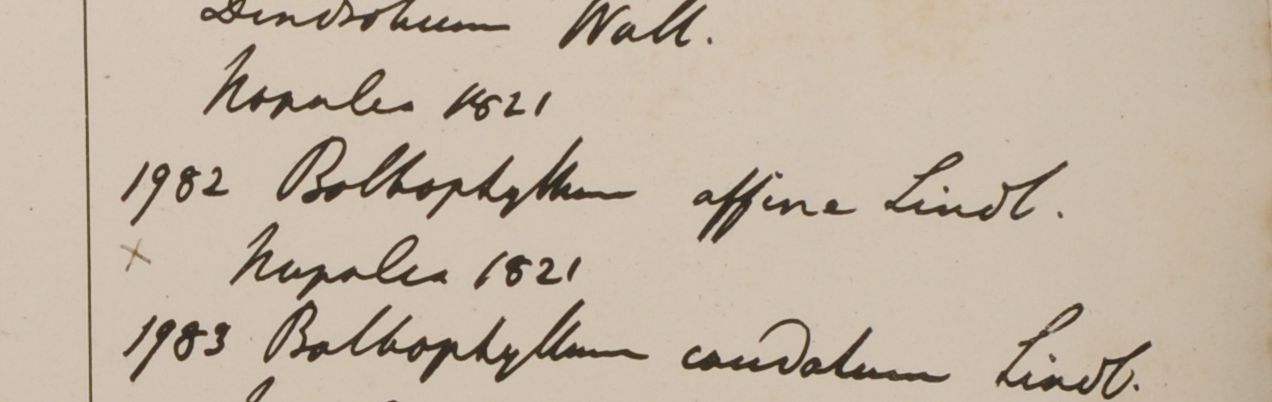 Dendrobium Wall.
Napalia 1821
1982 Bolbophyllum affine Lindl.
× Napalia 1821
1983 Bolbophyllum caudatum Lindl.